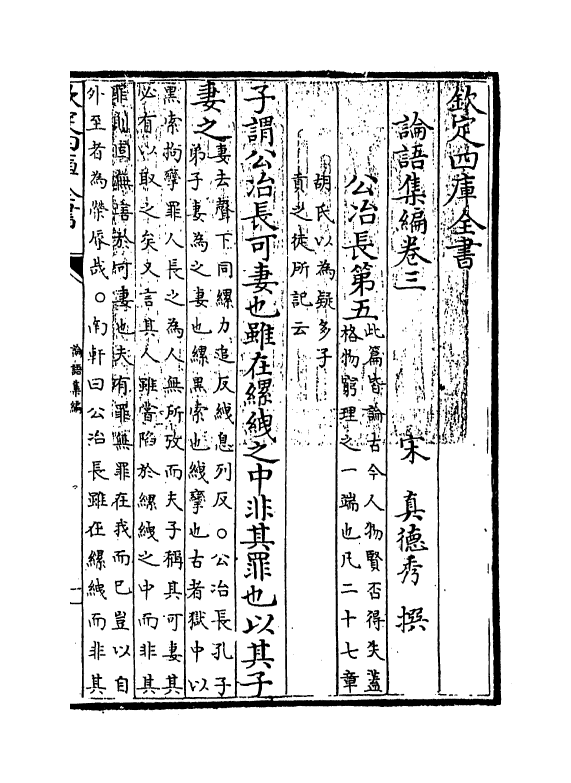 欽定四庫全書
論語集編卷三
宋 真德秀 撰
公冶長第五
此篇皆論古今人物賢否得失蓋
格物窮理之一端也凡二十七章
胡氏以為疑多子
貢之徒所記云
子謂公冶長可妻也雖在縲絏之中非其罪也以其子
妻之
妻去聲下同縲力追反絏息列反○公冶長孔子
弟子妻為之妻也縲黑索也絏攣也古者獄中以
黑索拘攣罪人長之為人無所攷而夫子稱其可妻其
必有以取之矣又言其人雖嘗陷於縲絏之中而非其
罪則固無害於可妻也夫有罪無罪在我而已豈以自
外至者為榮辱哉○南軒曰公冶長雖在縲絏而非其
欽定四庫全書
論語集編
一